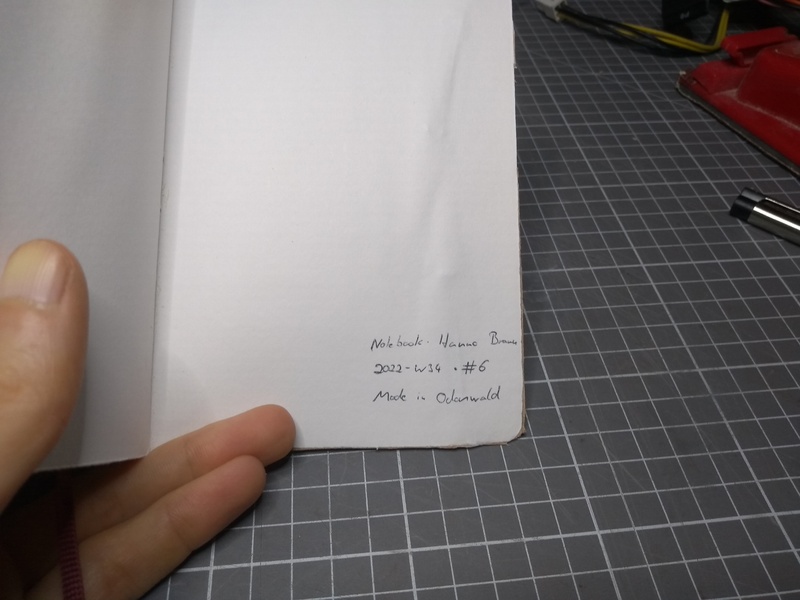 Notebook · Hanno Braun
2022-W34 · #6
Made in Odenwald